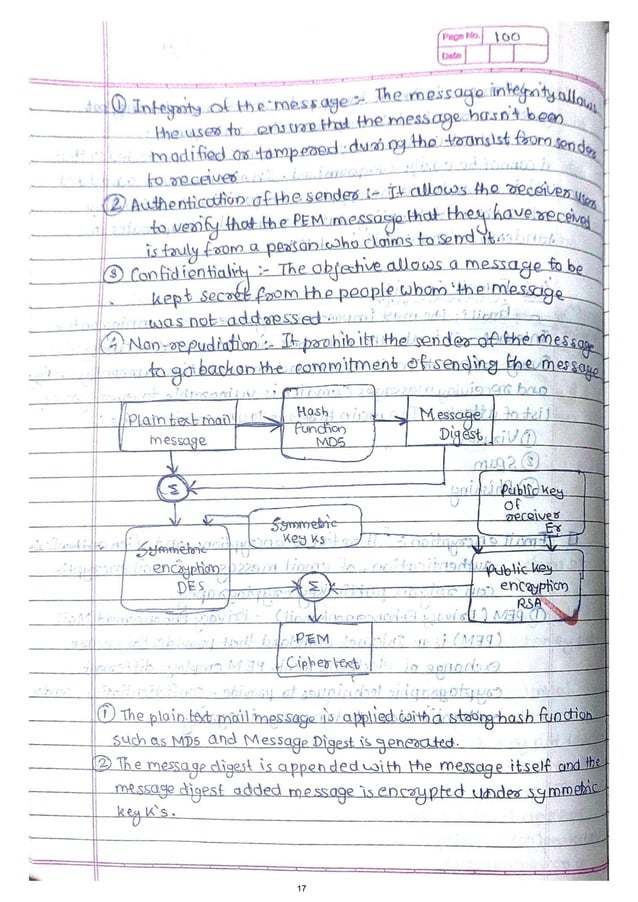 Page No. 100
Date
① Integrity of the message :- The message integrity allows
the user to ensure that the message hasn't been
modified or tampered during the transist from sender
to receiver
② Authentication of the sender :- It allows the receiver user
to verify that the PEM message that they have received
is truly from a person who claims to send it.
③ Confidientiality :- The objective allows a message to be
kept secret from the people whom the message
was not addressed
④ Non-repudiation :- It prohibits the sender of the message
to go back on the commitment of sending the message
Plain text mail
message
Hash
function
MD5
Message
Digest
Σ
Public key
of
receiver
Er
Symmetric
Key Ks
Symmetric
encryption
DES
Σ
Public key
encryption
RSA
PEM
Ciphertext
① The plain text mail message is applied with a strong hash function
such as MD5 and Message Digest is generated.
② The message digest is appended with the message itself and the
message digest added message is encrypted under symmetric
key K's.
17